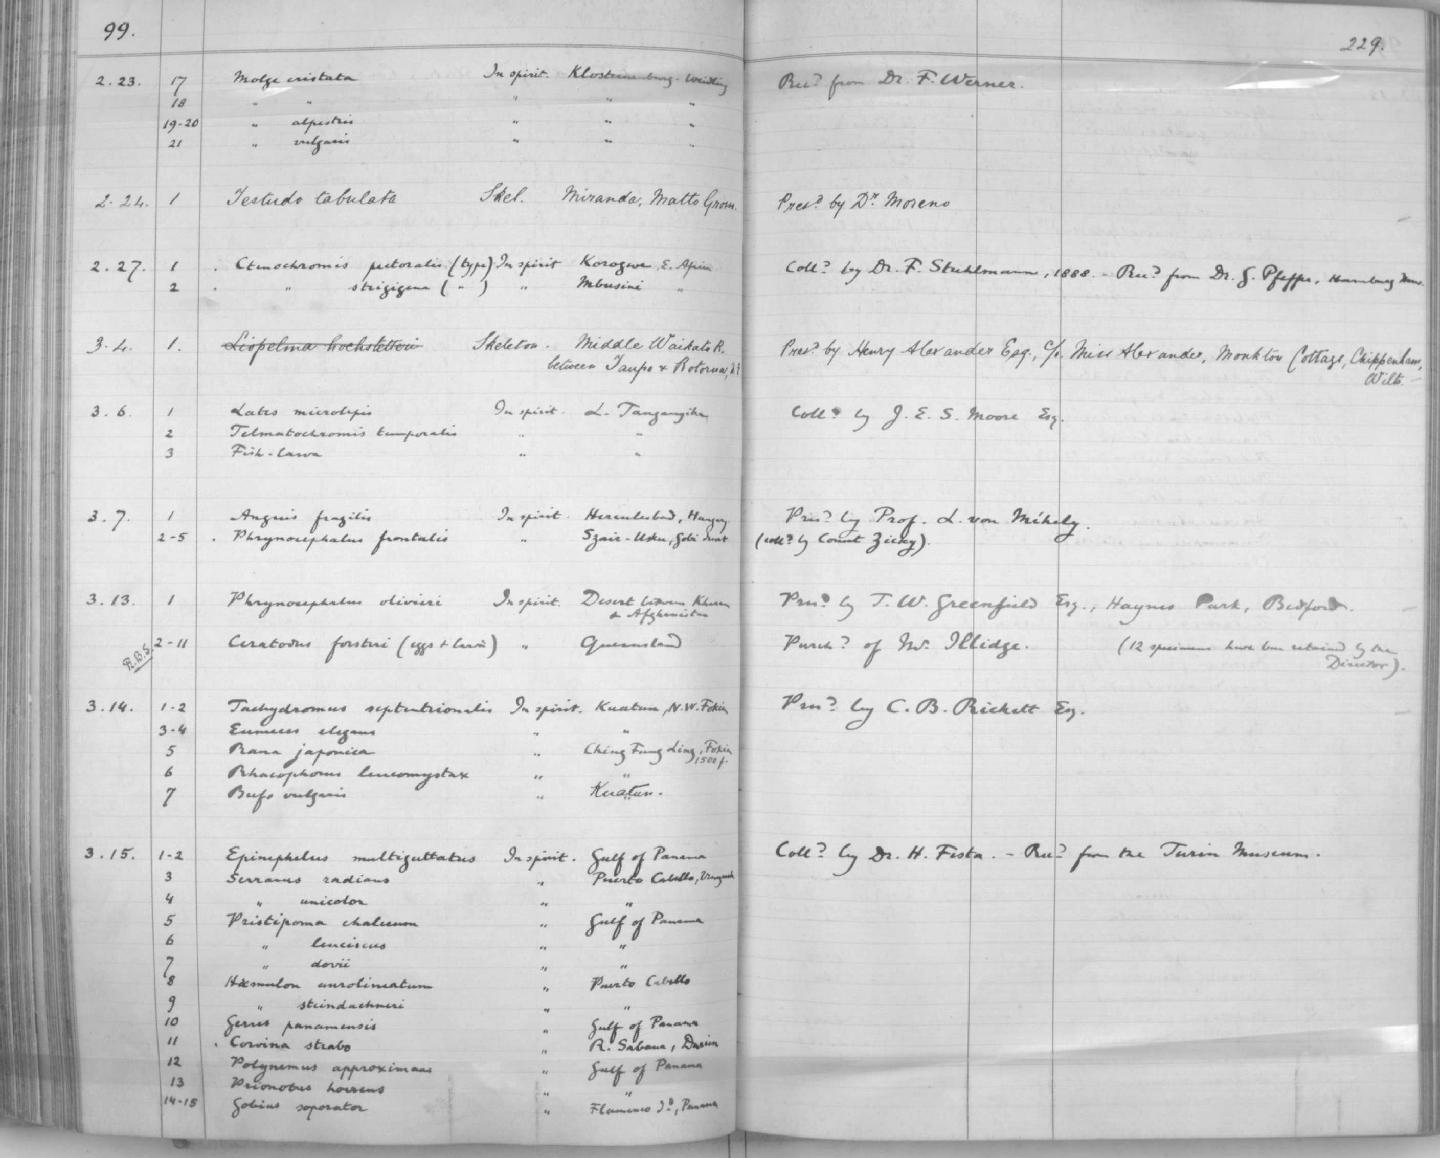 99.
229.
2.23. 17 Molge cristata In spirit. Klosterneuburg. Weidling Rec? from Dr. F. Werner.
18 " " " " "
19-20 " alpestris " " "
21 " vulgaris " " "
2.24. 1 Testudo tabulata Skel. Miranda, Matto Gross. Pres? by Dr. Moreno
2.27. 1 . Ctenochromis pectoralis (type) In spirit Korogwe, E. Africa Coll? by Dr. F. Stuhlmann, 1888. - Rec? from Dr. G. Pfeffer, Hamburg Mus.
2 . " strigigena ( " ) " Mbusini "
3.4. 1. Liopelma hochstetteri Skeleton. Middle Waikato R. Pres? by Henry Alexander Esq., c/o Miss Alexander, Monkton Cottage, Chippenham,
between Taupo & Rotorua, N.Z. Wilts. -
3.6. 1 Lates microlepis In spirit. L. Tanganyika Coll? by J. E. S. Moore Esq.
2 Telmatochromis temporalis " "
3 Fish-larva " "
3.7. 1 Anguis fragilis In spirit. Herculesbad, Hungary Pres? by Prof. L. von Méhely.
2-5 . Phrynocephalus frontalis " Gobi Desert (coll? by Count Zichy).
3.13. 1 Phrynocephalus olivieri In spirit. Desert between Khoran Pres? by T. W. Greenfield Esq., Haynes Park, Bedford.
& Afghanistan
R.B.S. 2-11 Ceratodus forsteri (eggs & larvæ) " Queensland Purch? of Mr. Illidge. (12 specimens have been retained by the
Director).
3.14. 1-2 Tachydromus septentrionalis In spirit. Kuatun, N.W. Fokien Pres? by C. B. Rickett Esq.
3-4 Eumeces elegans " "
5 Rana japonica " Ching Fung Ling, Fokien
1500 f.
6 Rhacophorus leucomystax " "
7 Bufo vulgaris " Kuatun.
3.15. 1-2 Epinephelus multiguttatus In spirit. Gulf of Panama Coll? by Dr. H. Festa. - Rec? from the Turin Museum.
3 Serranus radians " Puerto Cabello, Venezuela
4 " unicolor " "
5 Pristipoma chalceum " Gulf of Panama
6 " leuciscus " "
7 " dovii " "
8 Hæmulon aurolineatum " Puerto Cabello
9 " steindachneri " "
10 Gerres panamensis " Gulf of Panama
11 . Corvina strabo " R. Sabana, Darien
12 Polynemus approximans " Gulf of Panama
13 Prionotus horrens " "
14-15 Gobius soporator " Flamenco Id., Panama